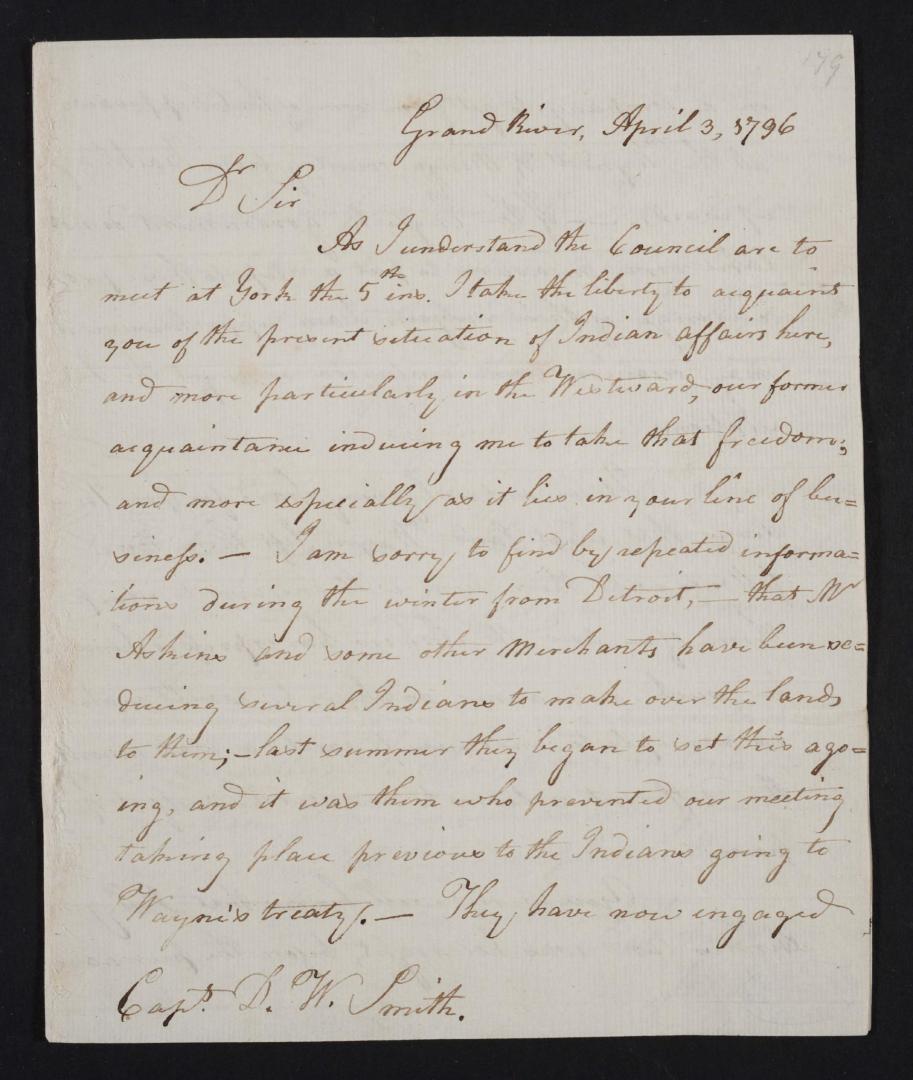 199
Grand River, April 3, 1796
Dr Sir
As I understand the Council are to
meet at York the 5th ins. I take the liberty to acquaint
you of the present setuation of Indian affairs here,
and more particularly in the Westward, our former
acquaintance inducing me to take that freedom;
and more especially as it lies in your line of bu=
siness. — I am sorry to find by repeated informa=
tions during the winter from Detroit, — that Mr
Askins and some other Merchants have been se=
ducing several Indians to make over the lands
to them; – last summer they began to set this ago=
ing, and it was them who prevented our meeting
taking place previous to the Indians going to
Wayne's treaty. — They have now engaged
Capt. D. W. Smith.